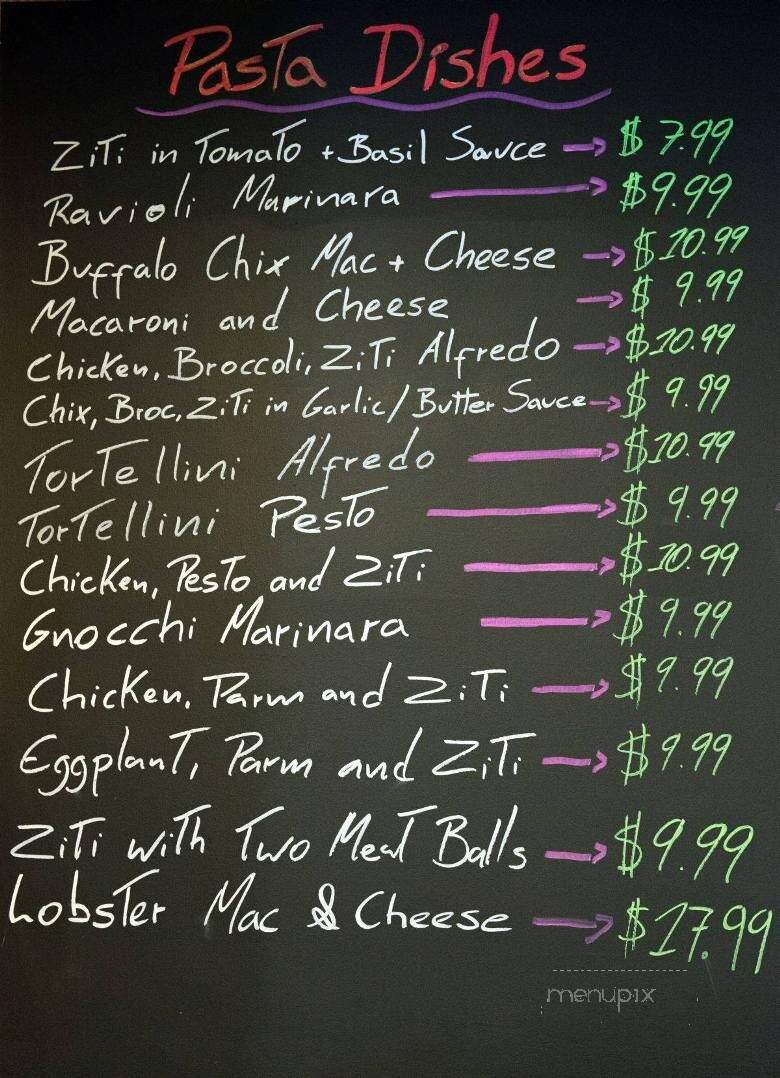 Pasta Dishes
Ziti in Tomato + Basil Sauce → $ 7.99
Ravioli Marinara → $9.99
Buffalo Chix Mac + Cheese → $10.99
Macaroni and Cheese → $ 9.99
Chicken, Broccoli, Ziti Alfredo → $10.99
Chix, Broc, Ziti in Garlic/Butter Sauce → $ 9.99
Tortellini Alfredo → $10.99
Tortellini Pesto → $ 9.99
Chicken, Pesto and Ziti → $10.99
Gnocchi Marinara → $ 9.99
Chicken, Parm and Ziti → $9.99
Eggplant, Parm and Ziti → $9.99
Ziti with Two Meat Balls → $9.99
Lobster Mac & Cheese → $17.99
menupix